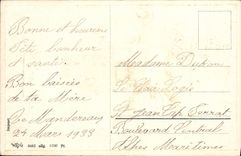 Bonne et heureuse
fête bonheur
et santé
Bon baisers
de ta Mère
24 Mars 1933
Madame
Le Clos Logis
St Jean Cap Ferrat
Boulevard Central
Alpes Maritimes